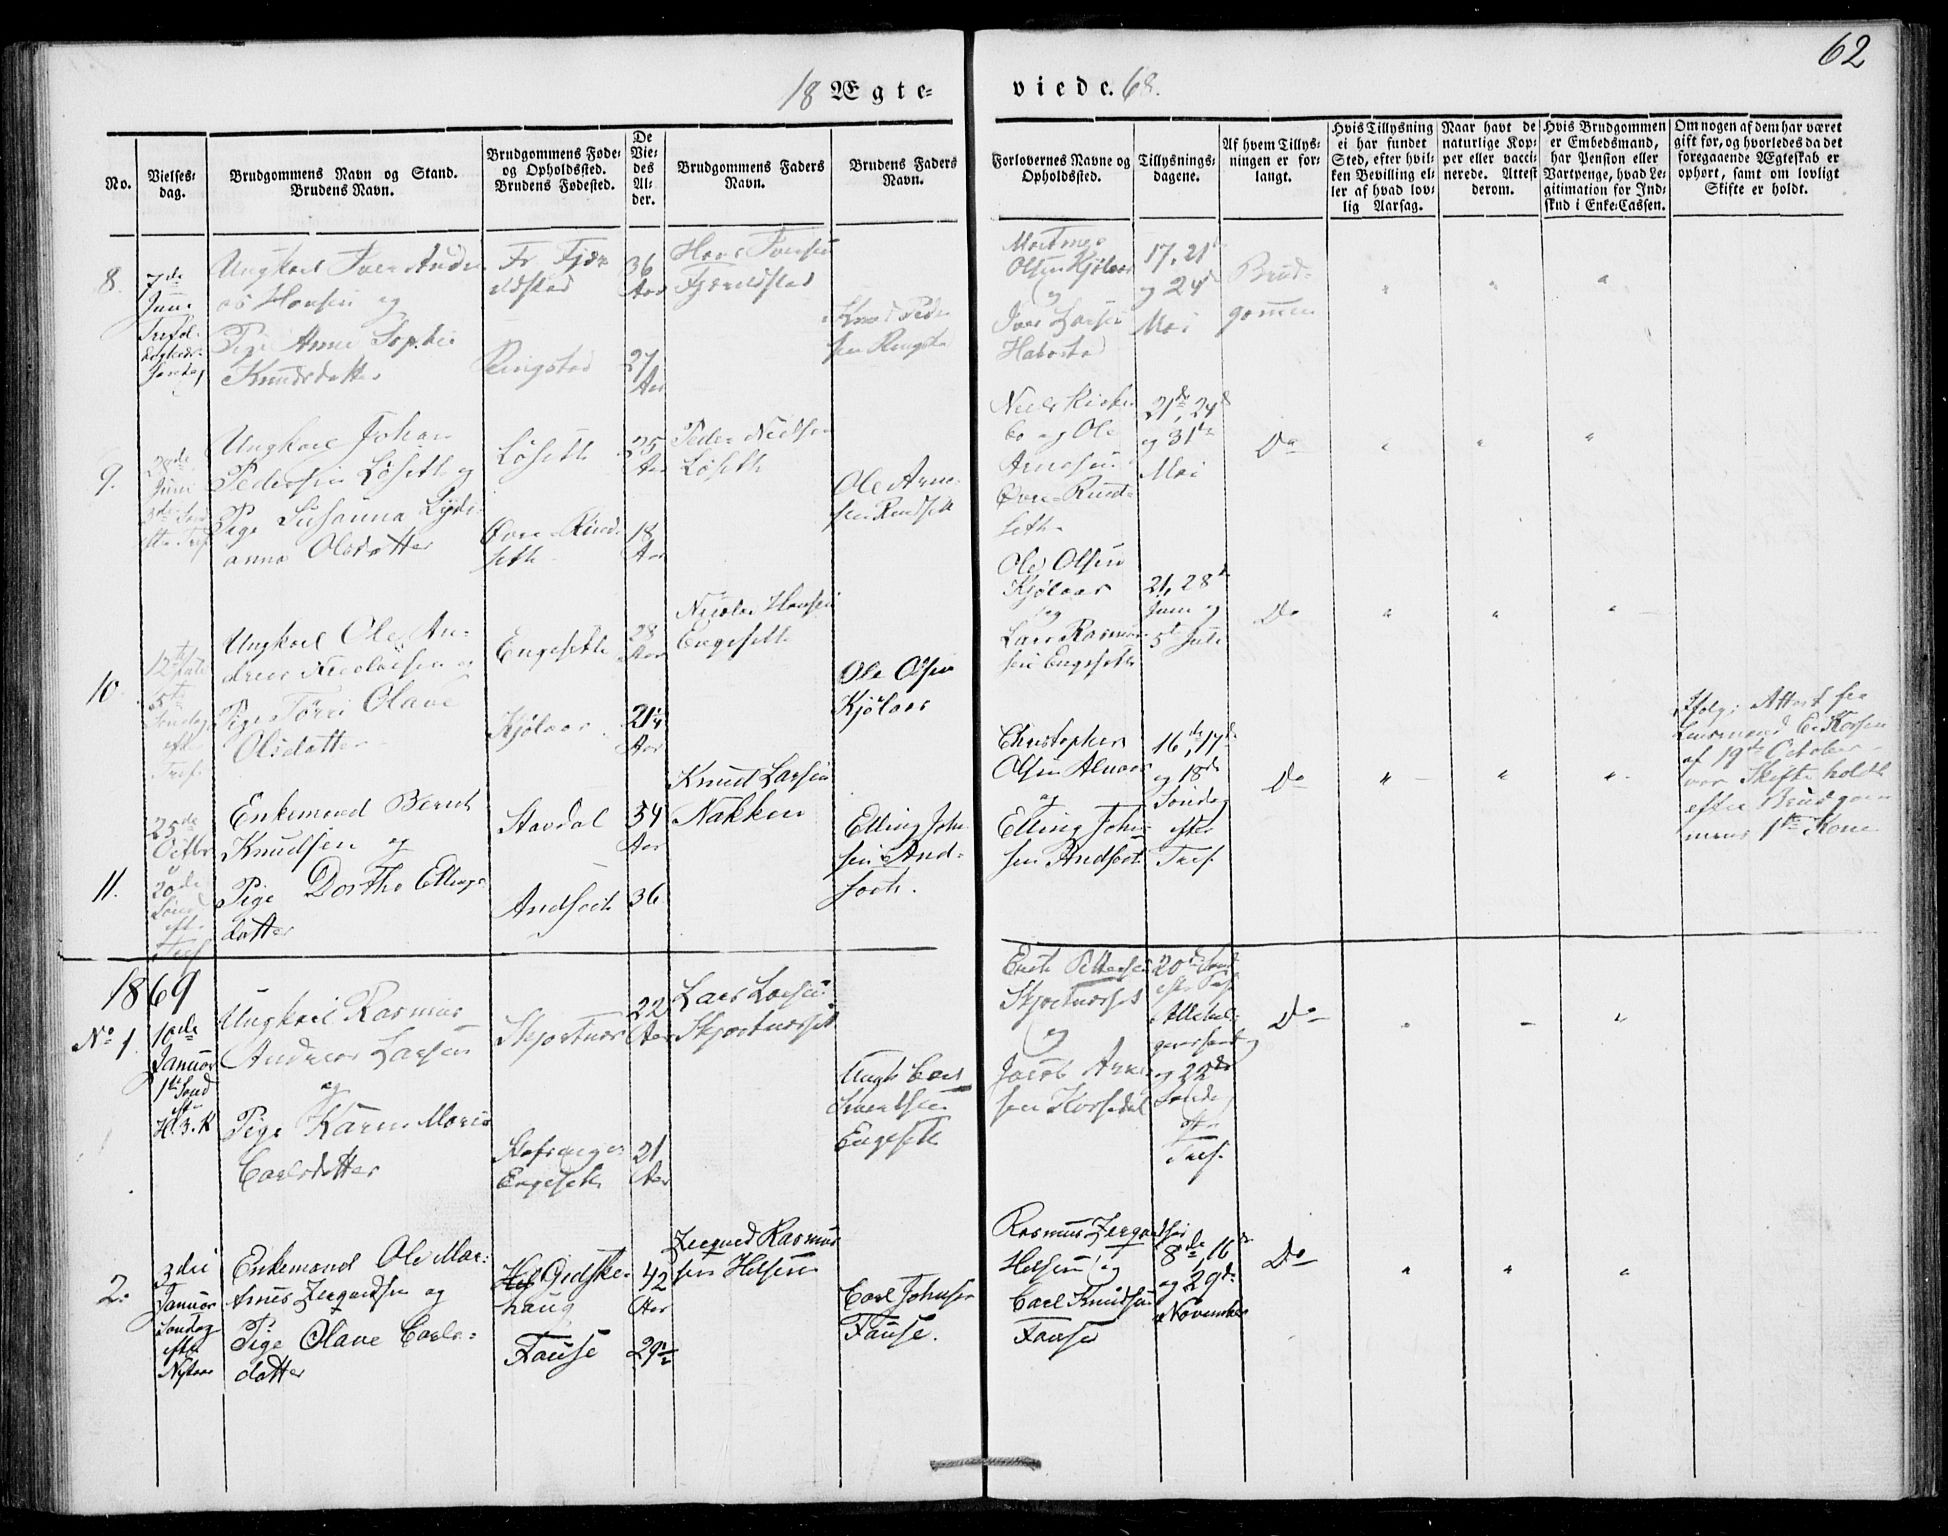 62
18 Ægte-
viede. 68.
No.
Vielses-
dag.
Brudgommens Navn og Stand.
Brudens Navn.
Brudgommens Føde-
og Opholdssted.
Brudens Fødested.
De
Vie-
des
Al-
der.
Brudgommens Faders
Navn.
Brudens Faders
Navn.
Forlovernes Navne og
Opholdssted.
Tillysnings-
dagene.
Af hvem Tillys-
ningen er for-
langt.
Hvis Tillysning
ei har fundet
Sted, efter hvil-
ken Bevilling el-
ler af hvad lov-
lig Aarsag.
Naar havt de
naturlige Kop-
per eller vacci-
nerede. Attest
derom.
Hvis Brudgommen
er Embedsmand,
har Pension eller
Vartpenge, hvad Le-
gitimation for Ind-
skud i Enke-Cassen.
Om nogen af dem har været
gift før, og hvorledes da det
foregaaende Ægteskab er
ophørt, samt om lovligt
Skifte er holdt.
8.
7de
Juni
Trefol-
digheds-
Søndag
Ungkarl Iver Andre-
as Hansen og
Pige Anne Sophie
Knudsdatter
Fr. Fjær-
ildstad
Ringstad
36
Aar
27
Aar
Hans Iversen
Fjærildstad
Knud Peder-
sen Ringstad
Olsen Kjølaas
og
Iver Larsen
17, 21de
og 24de
Mai
Brud-
gommen
9.
28de
Juni
3die Sønd
eft. Tref.
Ungkarl Johan
Pedersen Løseth og
Pige Susanna Lydi-
anna Olsdatter
Løseth
Øvre-Rind-
seth
25
Aar
18
Aar
Peder Nielsen
Løseth
Ole Arne-
sen Rindseth
og Ole
Arnesen
Øvre-Rind-
seth
21de, 24de
og 31te
Mai
Do
10.
12te Juli
5te
Søndag
eft.
Tref.
Ungkarl Ole An-
dreas Nicolaisen og
Pige Olave
Olsdatter
Engeseth
Kjølaas
28
Aar
21¼
Aar
Nicolai Hansen
Engeseth
Ole Olsen
Kjølaas
Ole Olsen
Kjølaas
og
Lars Rasmus-
sen Engeseth
21, 28de
Juni og
5te Juli
Do
11.
25de
Octbr
20de
Sønd
eft.
Tref.
Enkemand Bernt
Knudsen og
Pige Dorthe Ellings-
datter
Stavdal
Andsæth
34
Aar
36
Knud Larsen
Nakken
Elling Johan-
sen And-
sæth.
Christopher
Olsen Alnæs
og
Elling Johan-
sen Andsæth
16de, 17de
og 18de
Søndag
efter
Tref.
Do
Ifølge Attest fra
Lensmand
af 19de October
var Skifte holdt
efter Brudgom-
mens 1ste Kone
1869
No 1.
10de
Januar
1ste Sønd
eft
H.3.K
Ungkarl Rasmus
Andreas Larsen
og
Pige Karen Marie
Carlsdatter
Skjortnæs
Engeseth
22
Aar
21
Aar
Lars Larsen
Skjortnæsset
Carl
Sivertsen
Engeseth
Pettersen
Skjortnæsset
og
Jacob Arne-
sen
20de Sønd
efter Tref.
Allehel-
gensfest
og 22de
Søndag
eft.
Tref.
Do
2.
3die
Januar
Søndag
efter
Nytaar
Enkemand Ole Mar-
tinus Zergardsen og
Pige Olave Carls-
datter
Gidske-
haug
Fause
42
Aar
29½
Rasmus-
sen Hessen
Carl Johnsen
Fause.
Rasmus
Hessen og
Carl Knudsen
Fause
8de, 16de
og 29de
November
Do